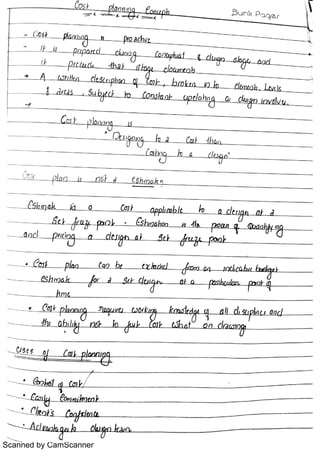 Cost planning Concept
Bunk Paper
- Cost planning is proactive
- It is prepared during Conceptual & design stage and
it precedes that stage documents
* A written description of Cost, broken into elements, Levels
& areas, Subject to Constant updating as design involves.
Cost planning is
"Designing to a Cost than
Costing to a design"
Cost plan is not a Estimate
Estimate is a Cost applicable to a design at a
Set freeze point. Estimation is the process of Quantifying
and pricing a design at set freeze point
• Cost plan can be extended from an indicative budget
estimate for a set design at a particular point of
time
• Cost planning requires working knowledge of all disciplines and
the ability not to just Cost what on drawing
Uses of Cost planning
• Control of Cost
• Early Commitment
• Client's Confidence
• Advantage to design team
Scanned by CamScanner